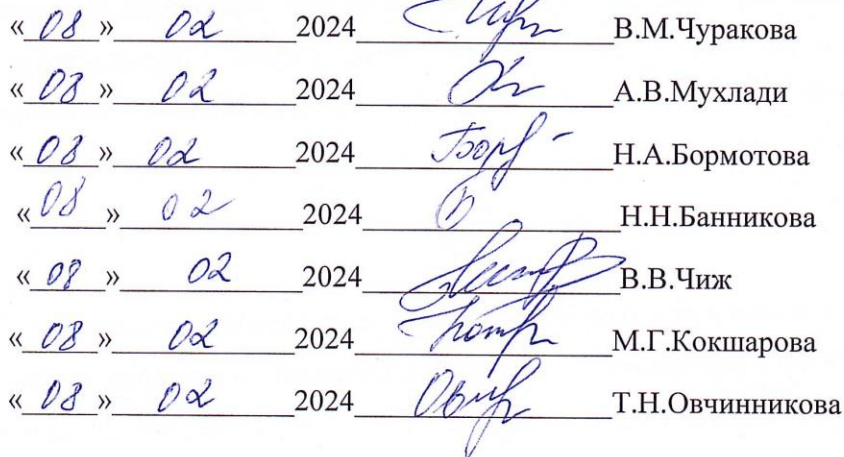 « 08 » 02 2024 В.М.Чуракова
« 08 » 02 2024 А.В.Мухлади
« 08 » 02 2024 Н.А.Бормотова
« 08 » 02 2024 Н.Н.Банникова
« 08 » 02 2024 В.В.Чиж
« 08 » 02 2024 М.Г.Кокшарова
« 08 » 02 2024 Т.Н.Овчинникова